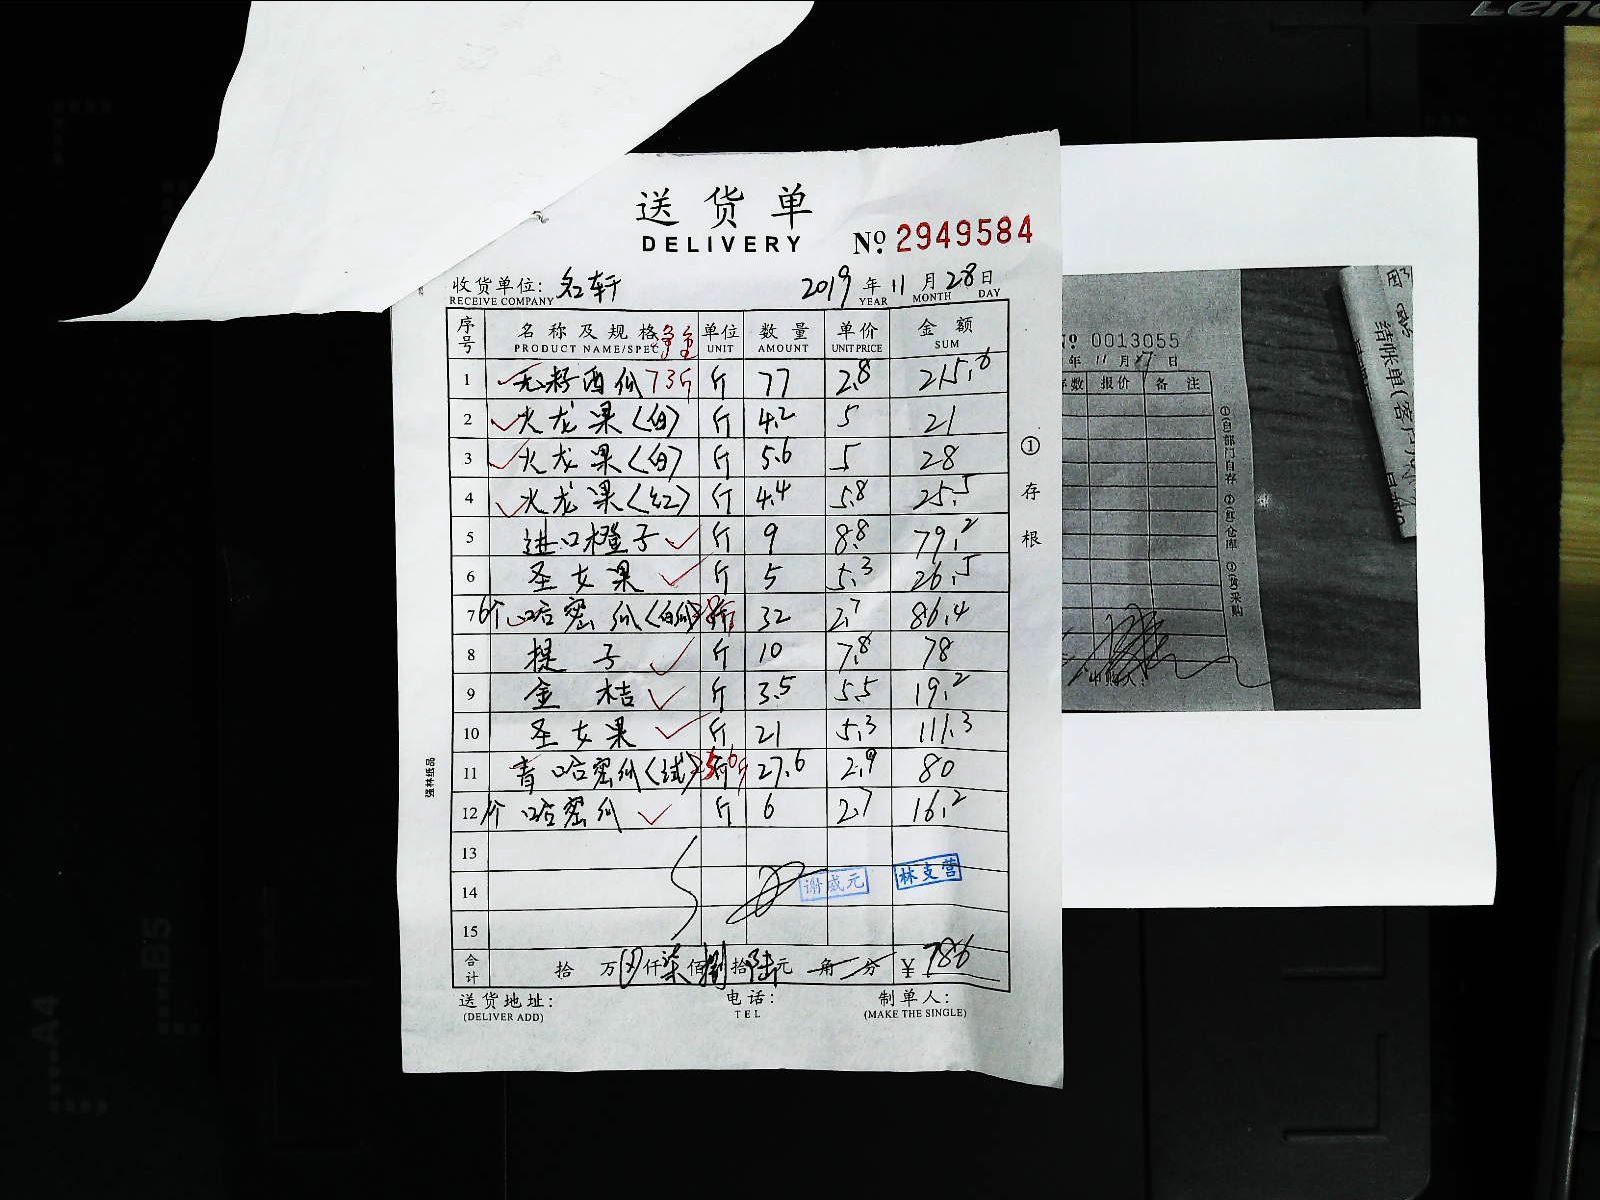 Leno
送货单
DELIVERY
No. 2949584
收货单位: 名轩 2019年11月28日
RECEIVE COMPANY YEAR MONTH DAY
序号 名称及规格 单位 数量 单价 金额
PRODUCT NAME/SPEC UNIT AMOUNT UNIT PRICE SUM
1 无籽西瓜 73斤 斤 77 2.8 215.6
2 火龙果(白) 斤 4.2 5 21
3 火龙果(白) 斤 5.6 5 28
4 火龙果(红) 斤 4.4 5.8 25.5
5 进口橙子 斤 9 8.8 79.2
6 圣女果 斤 5 5.3 26.5
7 6个 哈密瓜 斤 32 2.7 86.4
8 提子 斤 10 7.8 78
9 金桔 斤 3.5 5.5 19.2
10 圣女果 斤 21 5.3 111.3
11 青哈密瓜(试) 斤 27.6 2.9 80
12 1个 哈密瓜 斤 6 2.7 16.2
13
14 谢威元 林支营
15
合计 拾 万 仟柒佰捌拾陆元 角 分 ¥ 786
送货地址: 电话: 制单人:
(DELIVER ADD) TEL (MAKE THE SINGLE)
①存根
强林纸品
No 0013055
年 11 月 17 日
数 报价 备注
①(白)部门自存 ②(红)仓库 ③(黄)采购
结帐单(客
A4
B5